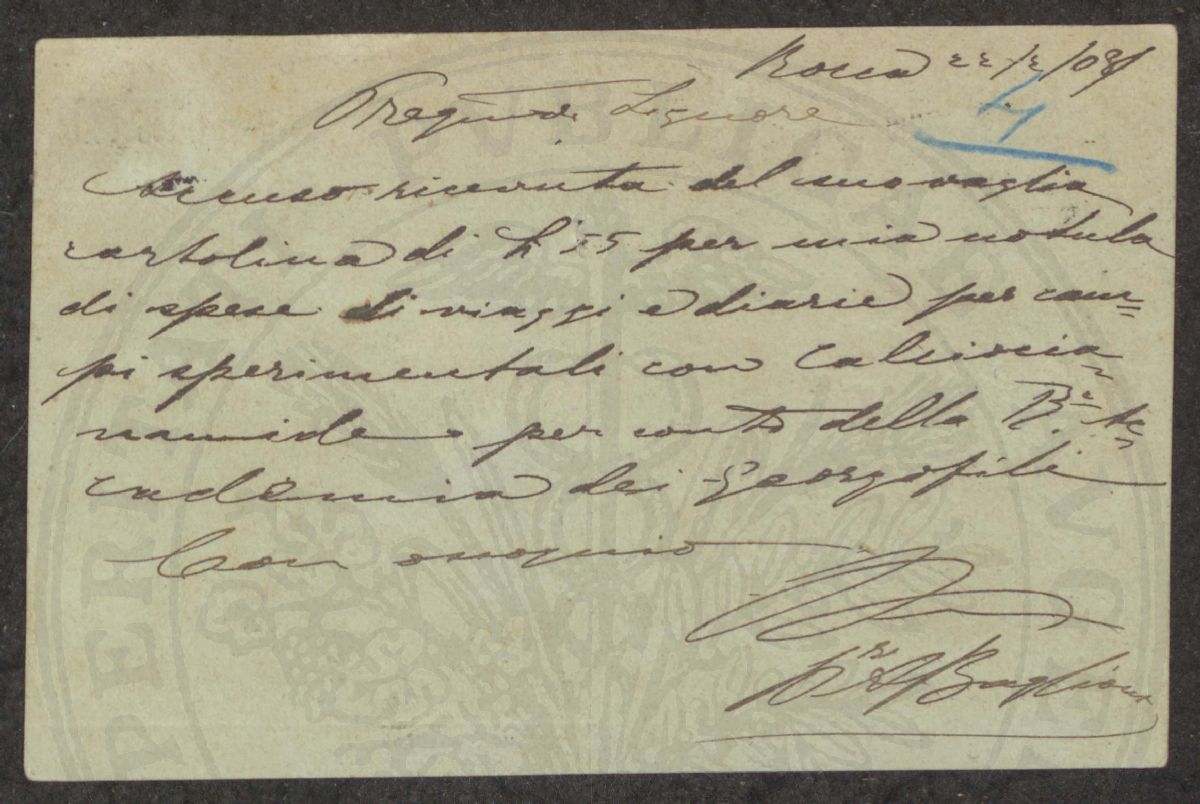 Roma 22/2/08
4
Preg.mo Signore
Accuso ricevuta del suo vaglia
cartolina di L. 55 per mia notula
di spese di viaggi e diarie per cam=
pi sperimentali con Calciocia=
namide per conto della R.e Ac=
cademia dei Georgofili
Con ossequio
D.r A Baglioni